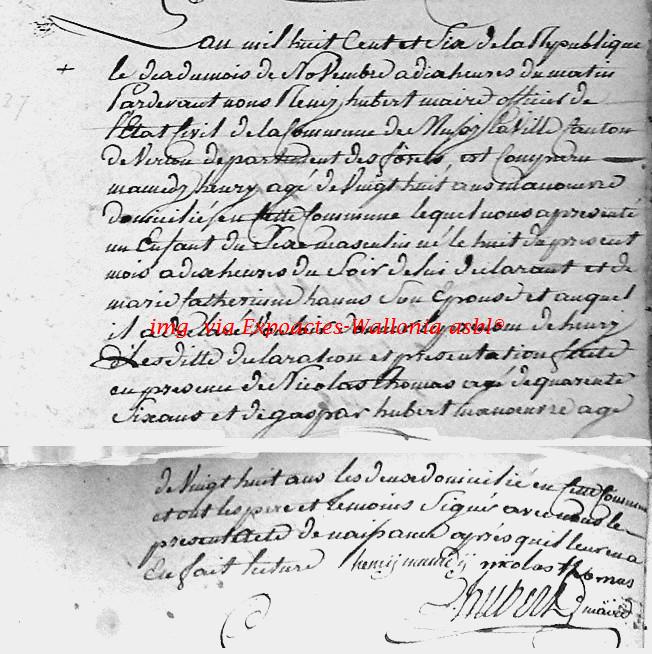 L'an mil huit Cent et Six de la Republique
+ le dix du mois de Novembre a dix heures du matin
Pardevant nous Remij hubert maire officier de
l'Etat Civil de la Commune de Mussÿ la ville Canton
de Virton departement des forêts, est Comparu
mamedÿ henry agé de Vingt huit ans manouvre
domicilié en Cette Commune lequel nous apresenté
un Enfant du Sexe masculin né le huit du present
mois a dix heures du Soir de lui declarant et de
marie Catherinne hanus Son Epouse et auquel
il a declaré Vouloir donner le prenom de henry
img. via Expoactes-Wallonia asbl®
Lesditte declaration et presentation faite
en presence de Nicolas thomas agé de quarente
Six ans et de gaspar hubert manoeuvre agé
de Vingt huit ans les deux domicilié en Cette Commune
et ont les pere et temoins Signé avec nous le
present acte de naissance après quil leur en a
Eu fait lecture henrij mamedij nicolas thomas
Rhubert maire